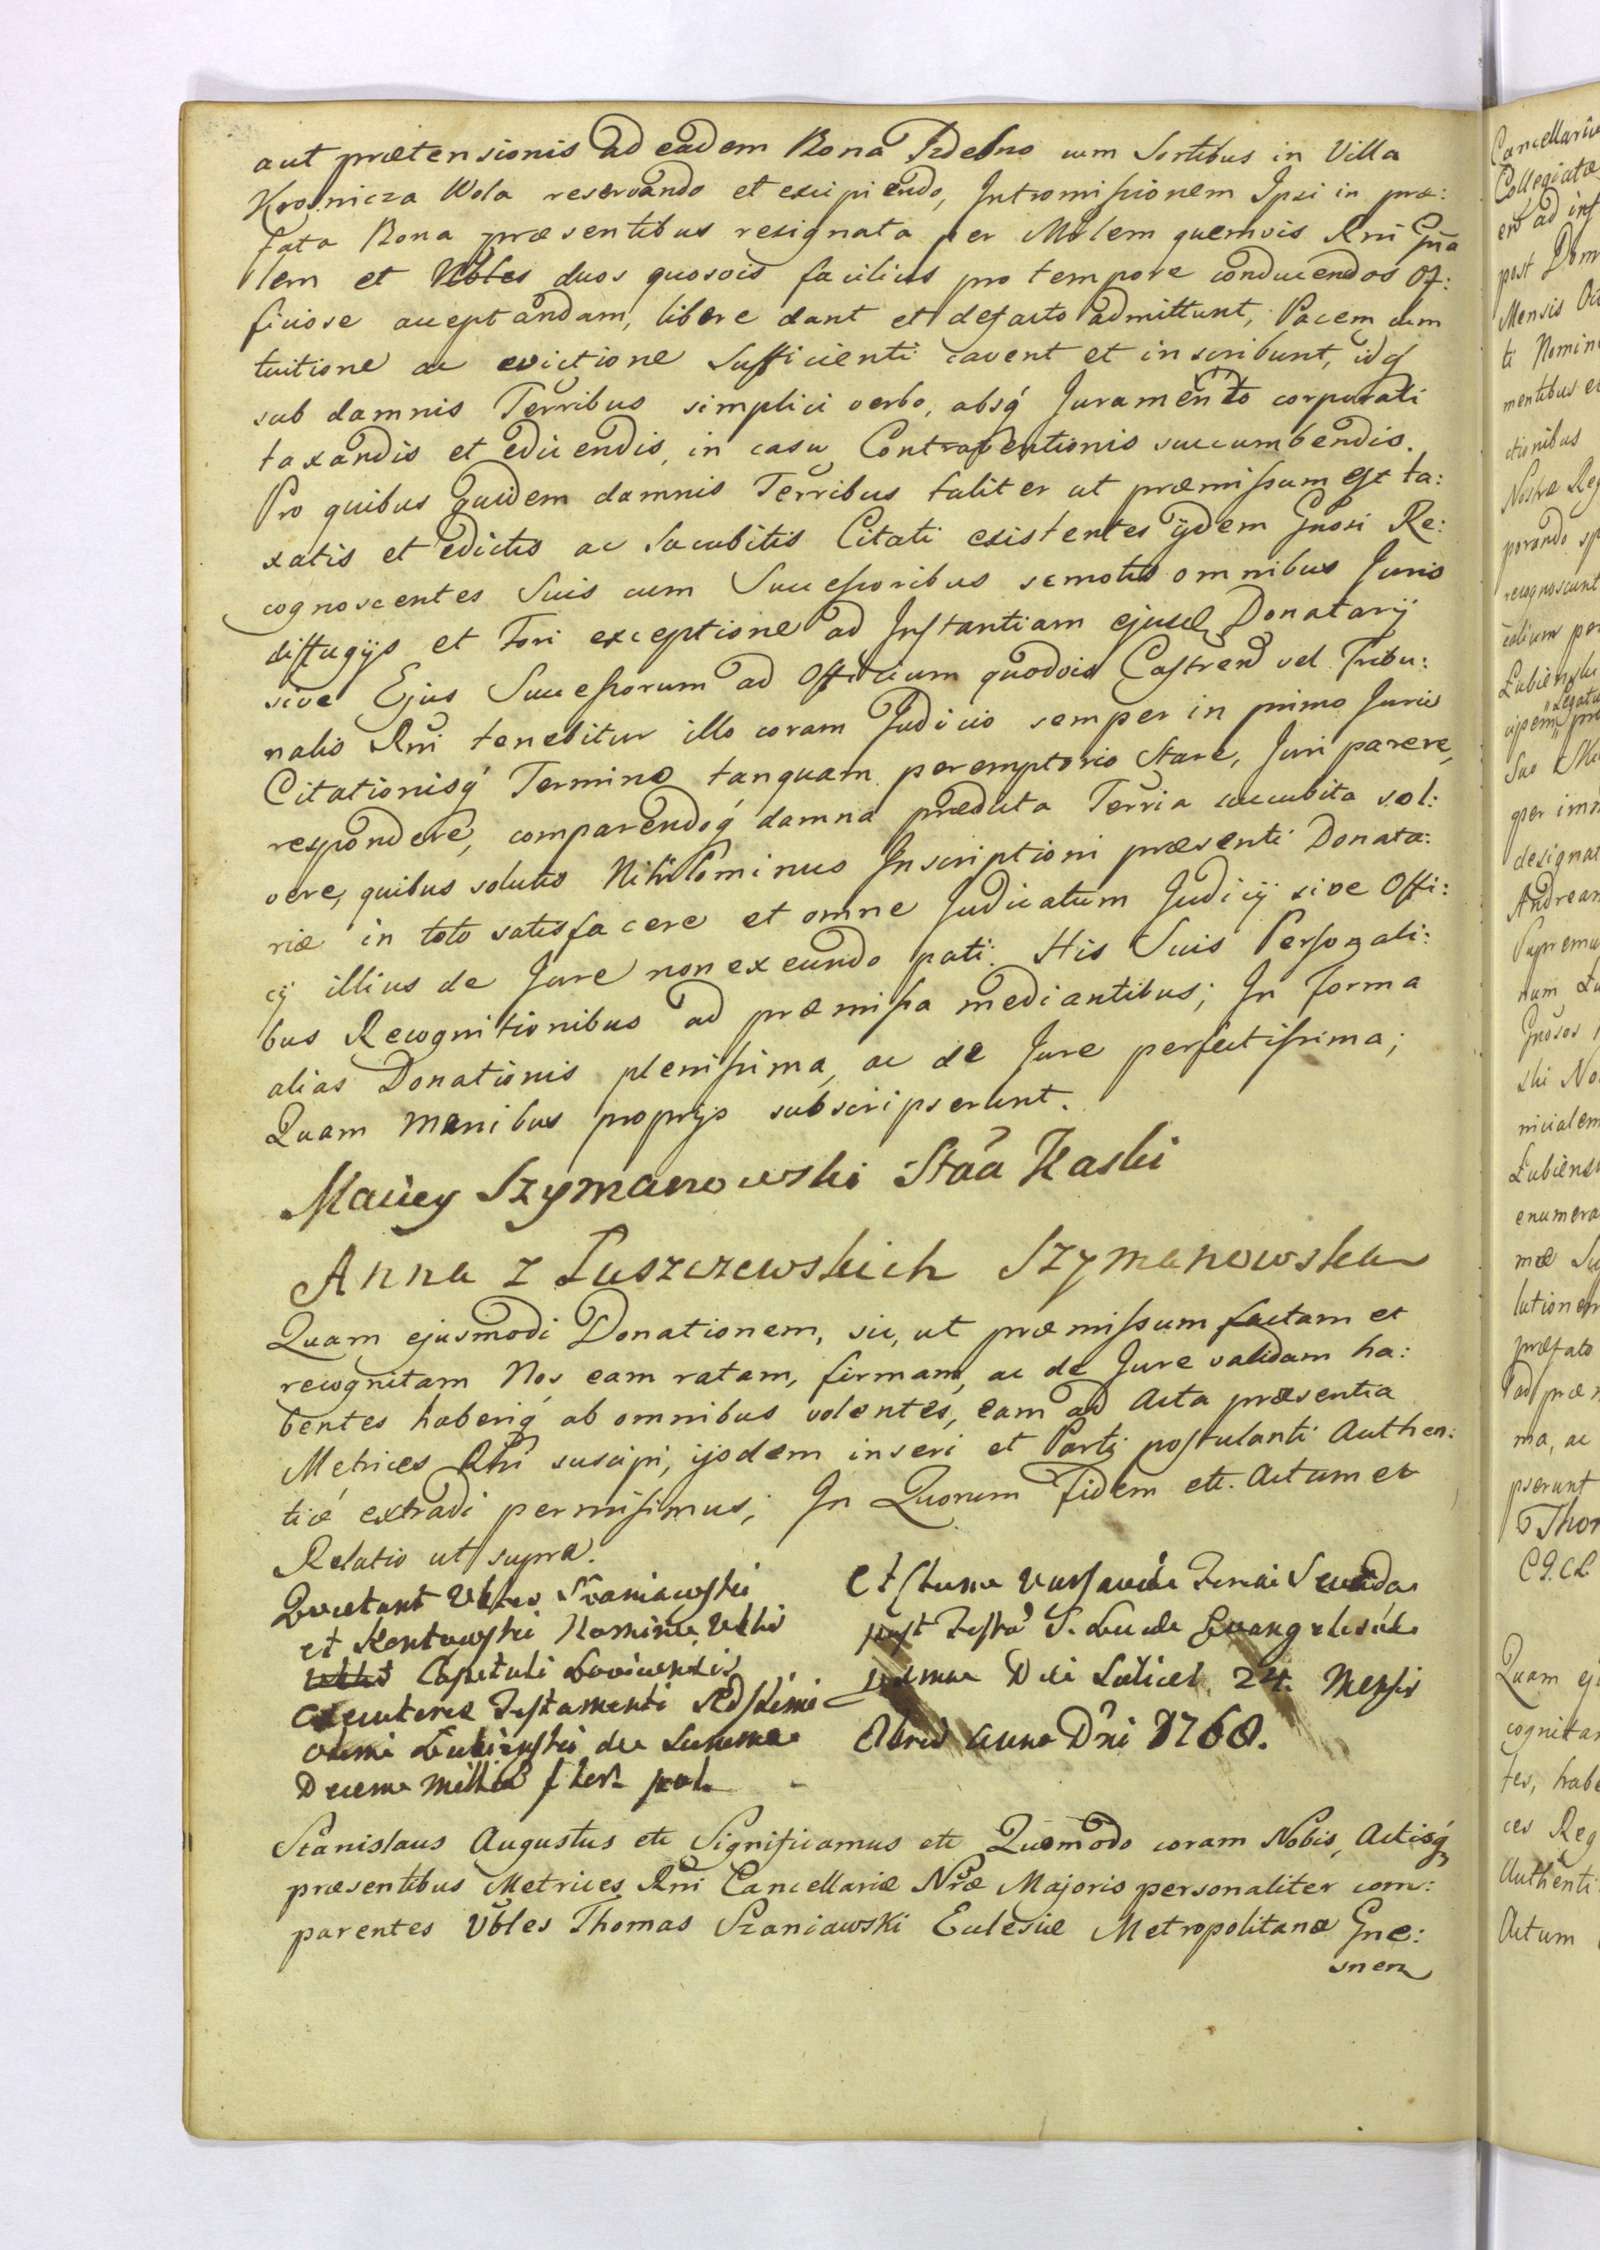 aut prætensionis ad eadem Bona Izdebno cum Sortibus in Villa
Krosnicza Wola reservando et excipiendo, Intromissionem Ipsi in præ:
fata Bona præsentibus resignata per Mñlem quemvis Rñi Gña
lem et Nobles duos quosvis facilius pro tempore conducendos Of:
ficiose acceptandam, libere dant et defacto admittunt, Pacem cum
tuitione ac evictione Sufficienti cavent et inscribunt, idq́
sub damnis Terribus simplici verbo, absq́ Juramento corporali
taxandis et edicendis, in casu Contraventionis succumbendis.
Pro quibus quidem damnis Terribus taliter ut præmissum est ta:
xatis et edictis ac Sucubitis Citati existentes ijdem Gnosi Re:
cognoscentes Suis cum Successoribus semotis omnibus Juris
diffugijs et Fori exceptione ad Instantiam ejusd Donatarij
sive Ejus Successorum ad Officium quodvis Castren vel Tribu:
nalis Rñi tenebitur illo coram Judicio semper in primo Juris
Citationisq́ Termino tanquam peremptorio Stare, Juri parere,
respondere, comparendoq́ damna prædicta Terria succubita sol:
vere, quibus solutis Nihilominus Inscriptioni præsenti Donata:
riæ in toto satisfacere et omne Judicatum Judicij sive Offi:
cij illius de Jure non exeundo pati. His Suis Personali:
bus Recognitionibus ad præmissa mediantibus; In Forma
alias Donationis plenissima, ac de Jure perfectissima;
Quam manibus proprijs subscripserunt.
Maciey Szymanowski Stãa Kaski
Anna z Luszczewskich Szymanowska
Quam ejusmodi Donationem, sic, ut præmissum factam et
recognitam Nos eam ratam, firmam, ac de Jure validam ha:
bentes haberiq́ ab omnibus volentes, eam ad Acta præsentia
Metrices Rñi suscipi, ijsdem inseri et Parti postulanti Authen:
ticé extradi permisimus; In Quorum Fidem etc. Actum et
Relatio ut supra.
Quietant Vbles Szaniawski
et Kentowski Nomine Vblis
Capituli Loviciensis
executores Testamenti
olim Lubienski de Summa
Decem Millia flor. pol.
Actum Varsaviæ Feria Secunda
post Festũ S. Lucæ Evangelistæ
proxima Die Scilicet 24. Mensis
8bris Anno Dñi 1768.
Stanislaus Augustus etc Significamus etc Quomodo coram Nobis, Actisq́
præsentibus Metrices Rñi Cancellariæ Nræ Majoris personaliter com:
parentes Vbles Thomas Szaniawski Eclesiæ Metropolitanæ Gne:
snen